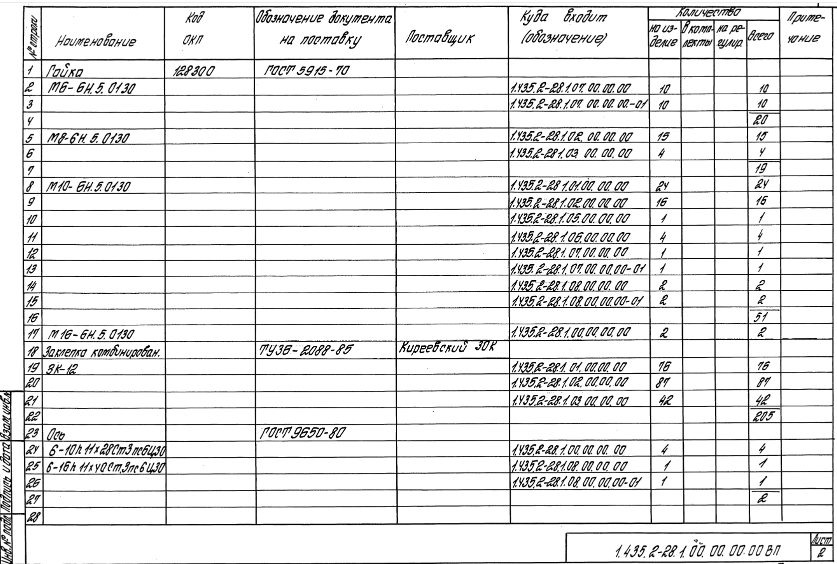 № строки Наименование Код ОКП Обозначение документа на поставку Поставщик Куда входит (обозначение) Количество на изделие в комплекты на регулир. Всего Примечание
1 Гайка 128300 ГОСТ 5915-70
2 М6-6Н.5.0130 1.435.2-28.1.07.00.00.00 10 10
3 1.435.2-28.1.07.00.00.00-01 10 10
4 20
5 М8-6Н.5.0130 1.435.2-28.1.02.00.00.00 15 15
6 1.435.2-28.1.03.00.00.00 4 4
7 19
8 М10-6Н.5.0130 1.435.2-28.1.01.00.00.00 24 24
9 1.435.2-28.1.02.00.00.00 16 16
10 1.435.2-28.1.05.00.00.00 1 1
11 1.435.2-28.1.06.00.00.00 4 4
12 1.435.2-28.1.07.00.00.00 1 1
13 1.435.2-28.1.07.00.00.00-01 1 1
14 1.435.2-28.1.08.00.00.00 2 2
15 1.435.2-28.1.08.00.00.00-01 2 2
16 51
17 М16-6Н.5.0130 1.435.2-28.1.00.00.00.00 2 2
18 Заклепка комбинирован. ТУ36-2088-85 Киреевский ЗОК
19 ЗК-12 1.435.2-28.1.01.00.00.00 76 76
20 1.435.2-28.1.02.00.00.00 87 87
21 1.435.2-28.1.03.00.00.00 42 42
22 205
23 Ось ГОСТ 9650-80
24 6-10h11х28Ст3пс6Ц30 1.435.2-28.1.00.00.00.00 4 4
25 6-16h11х40Ст3пс6Ц30 1.435.2-28.1.08.00.00.00 1 1
26 1.435.2-28.1.08.00.00.00-01 1 1
27 2
28
Инв.№ подл. Подпись и дата Взам.инв.№
1.435.2-28.1.00.00.00.00 ВП
Лист
2